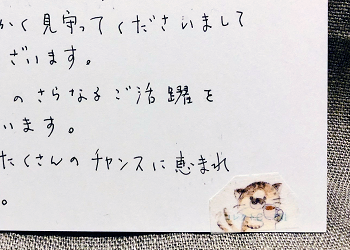 かく見守ってくださいまして
ざいます。
のさらなるご活躍を
います。
たくさんのチャンスに恵まれ
。